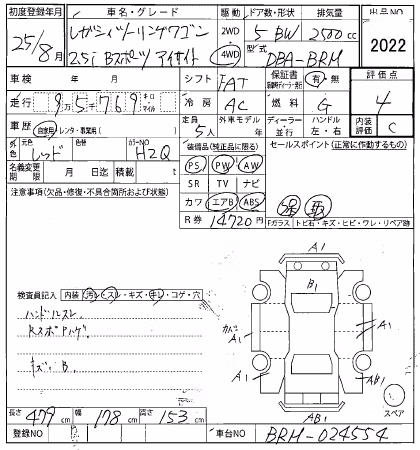 初度登録年月 車名・グレード 駆動 ドア数・形状 排気量 出品NO
25/8月 レガシィツーリングワゴン 2WD 5 BW 2500cc 2022
2.5i Bスポーツ アイサイト 4WD 型式 DBA-BRM
車検 年 月 シフト FAT 保証書 有 無 評価点
走行 9万5千769 キロ マイル 冷房 AC 燃料 G 4
車歴 自家用 レンタ・事業用( ) 定員 5人 外車モデル 年 ディーラー 並行 ハンドル 左・右 内装評価 C
外色 元色 レッド 色替 カラーNO H2Q 装備品(純正品に限る) セールスポイント(正常に作動するもの)
名義変更期限 月 日迄 積載 t PS PW AW
SR TV ナビ
注意事項(欠品・修復・不具合箇所および状態) カワ エアB ABS
R券 14720円
Fガラス トビ石・キズ・ヒビ・ワレ・リペア跡
A1
B1
検査員記入 内装 汚レ・スレ・キズ・コゲ・穴
ハンドルスレ
RスポPハゲ
キズ.B.
A1
A1
A1
AB1
AB1
スペア
長さ 479cm 幅 178cm 高さ 153cm
登録NO 車台NO BRM-024554